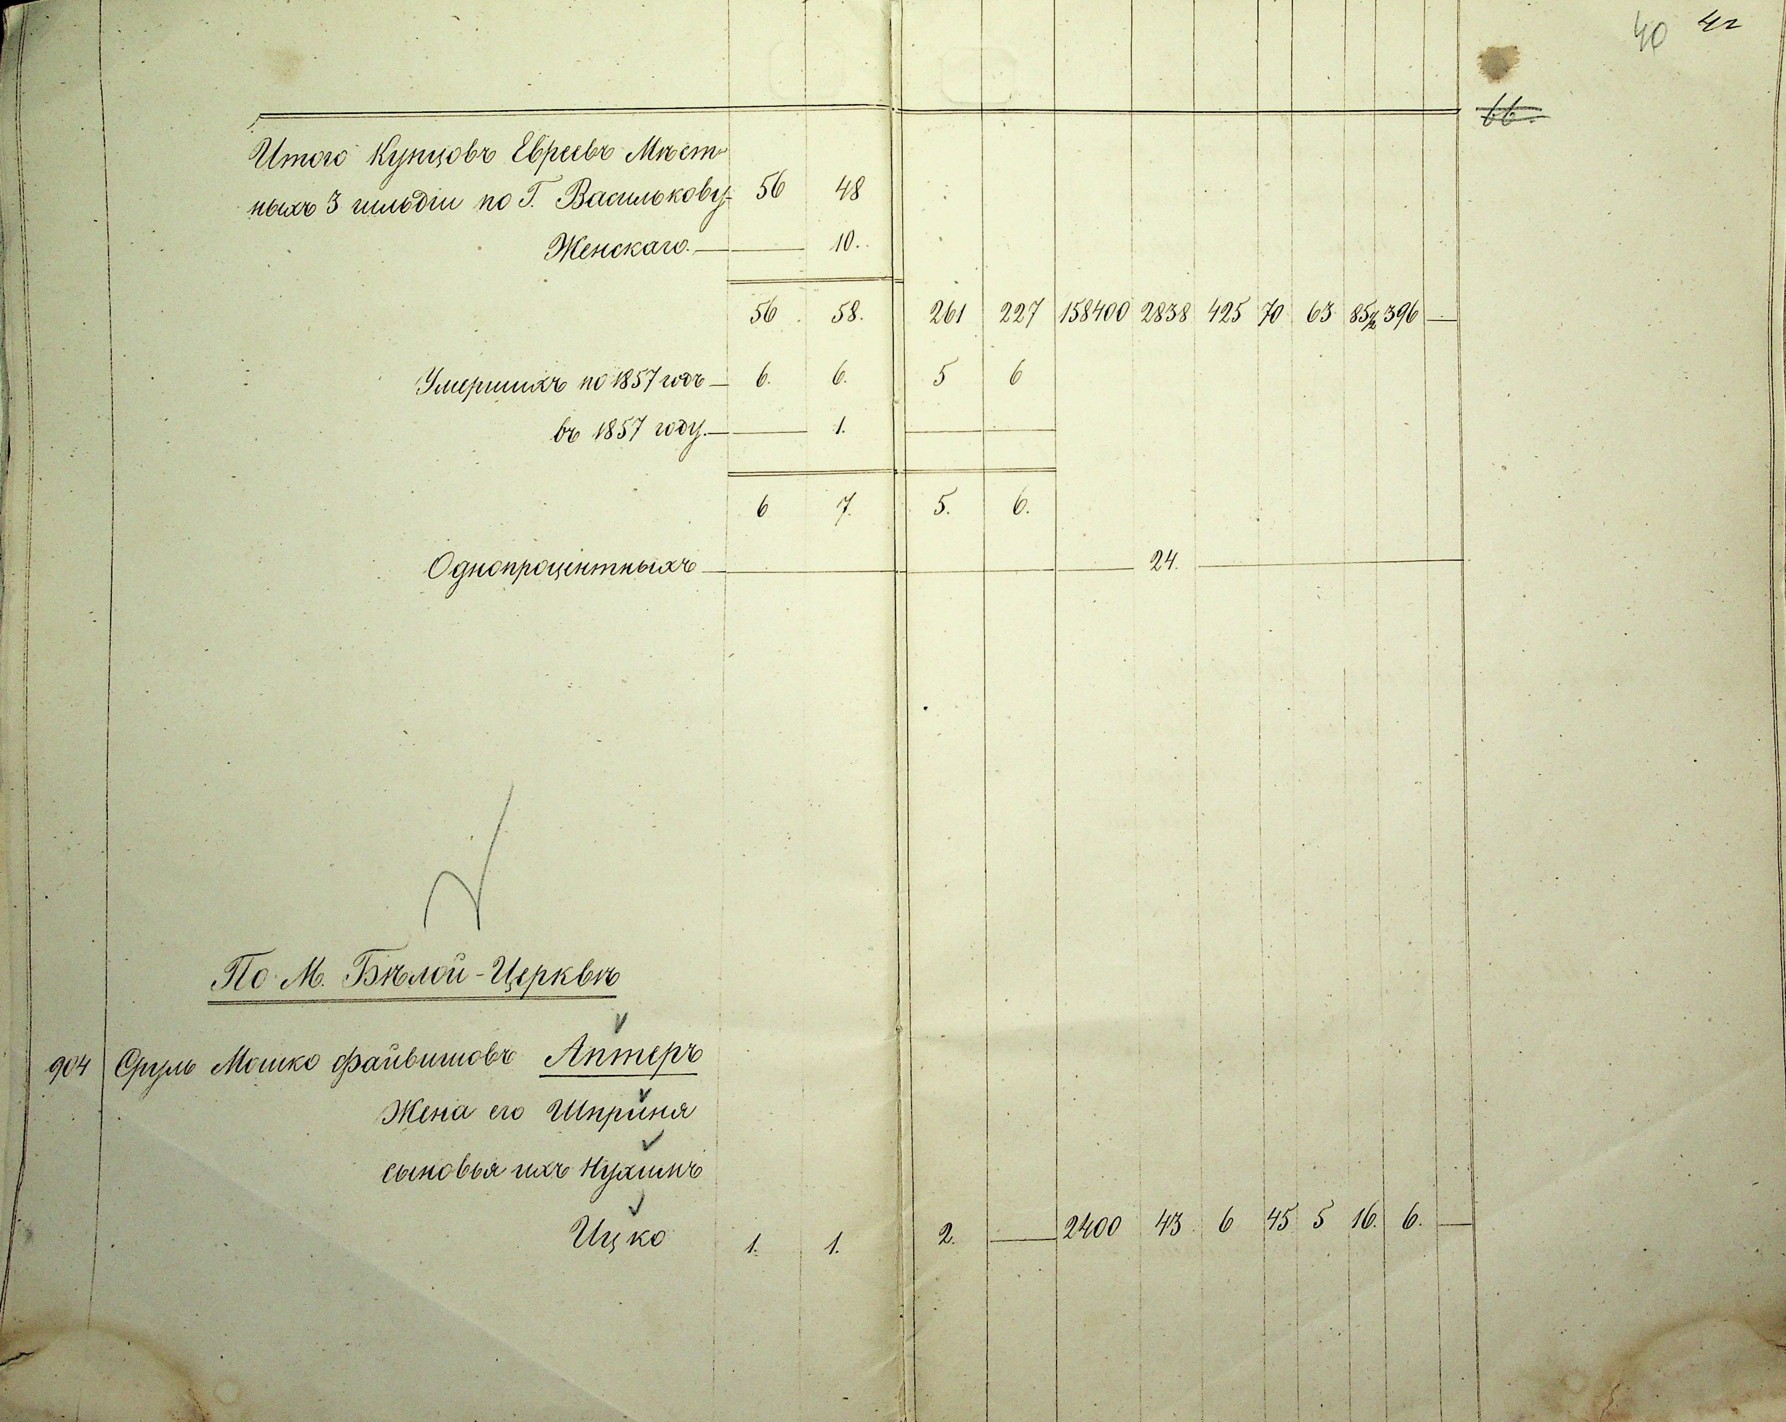 40 42
66.
Итого Купцовъ Евреевъ Мѣст-
ныхъ 3 гильдіи по Г. Василькову 56 48
Женскаго. — 10.
56 58. 261 227 158400 2838 425 70 63 85½ 396 —
Умершихъ по 1857 годъ — 6. 6. 5 6
въ 1857 году. — 1. — —
6 7. 5. 6.
Однопроцентныхъ — 24. —
По М. Бѣлой-Церквѣ
904 Сруль Мошко Файвишовъ Аптеръ
Жена его Шприня
сыновья ихъ Нухимъ
Ицко 1. 1. 2. — 2400 43 6 45 5 16. 6. —